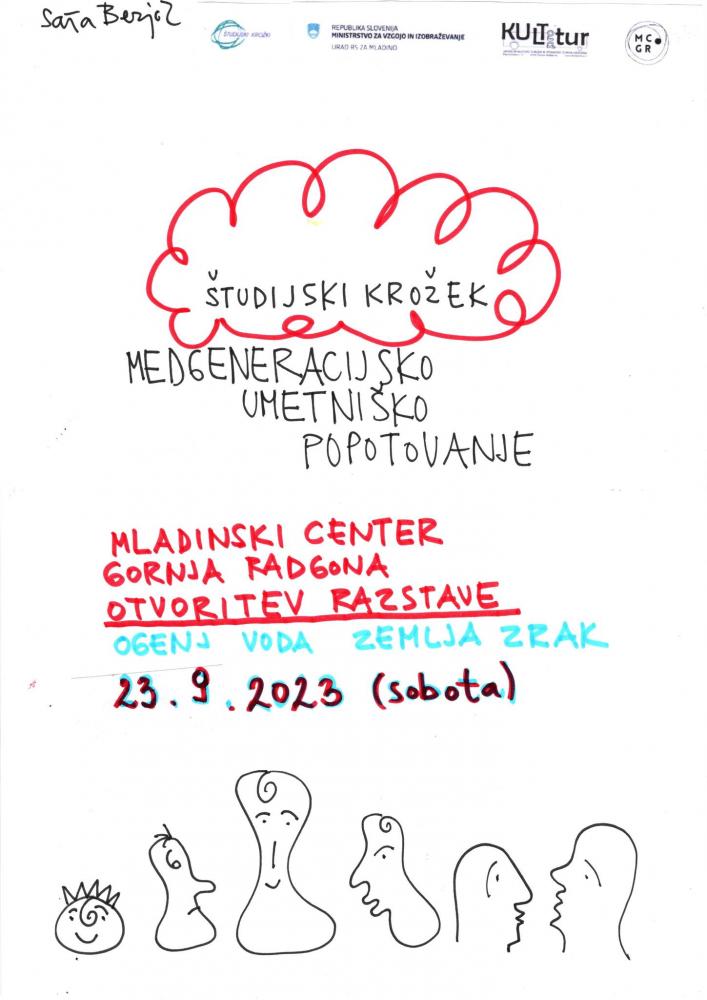 Saša Bezjak
ŠTUDIJSKI KROŽKI
REPUBLIKA SLOVENIJA
MINISTRSTVO ZA VZGOJO IN IZOBRAŽEVANJE
URAD RS ZA MLADINO
KULTtur
MC
GR
ŠTUDIJSKI KROŽEK
MEDGENERACIJSKO
UMETNIŠKO
POPOTOVANJE
MLADINSKI CENTER
GORNJA RADGONA
OTVORITEV RAZSTAVE
OGENJ VODA ZEMLJA ZRAK
23.9.2023 (sobota)